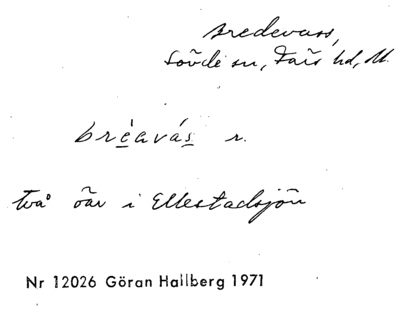 Bredevass,
Sövde sn, Färs hd, M.
brèavás r.
två öar i Ellestadsjön
Nr 12026 Göran Hallberg 1971